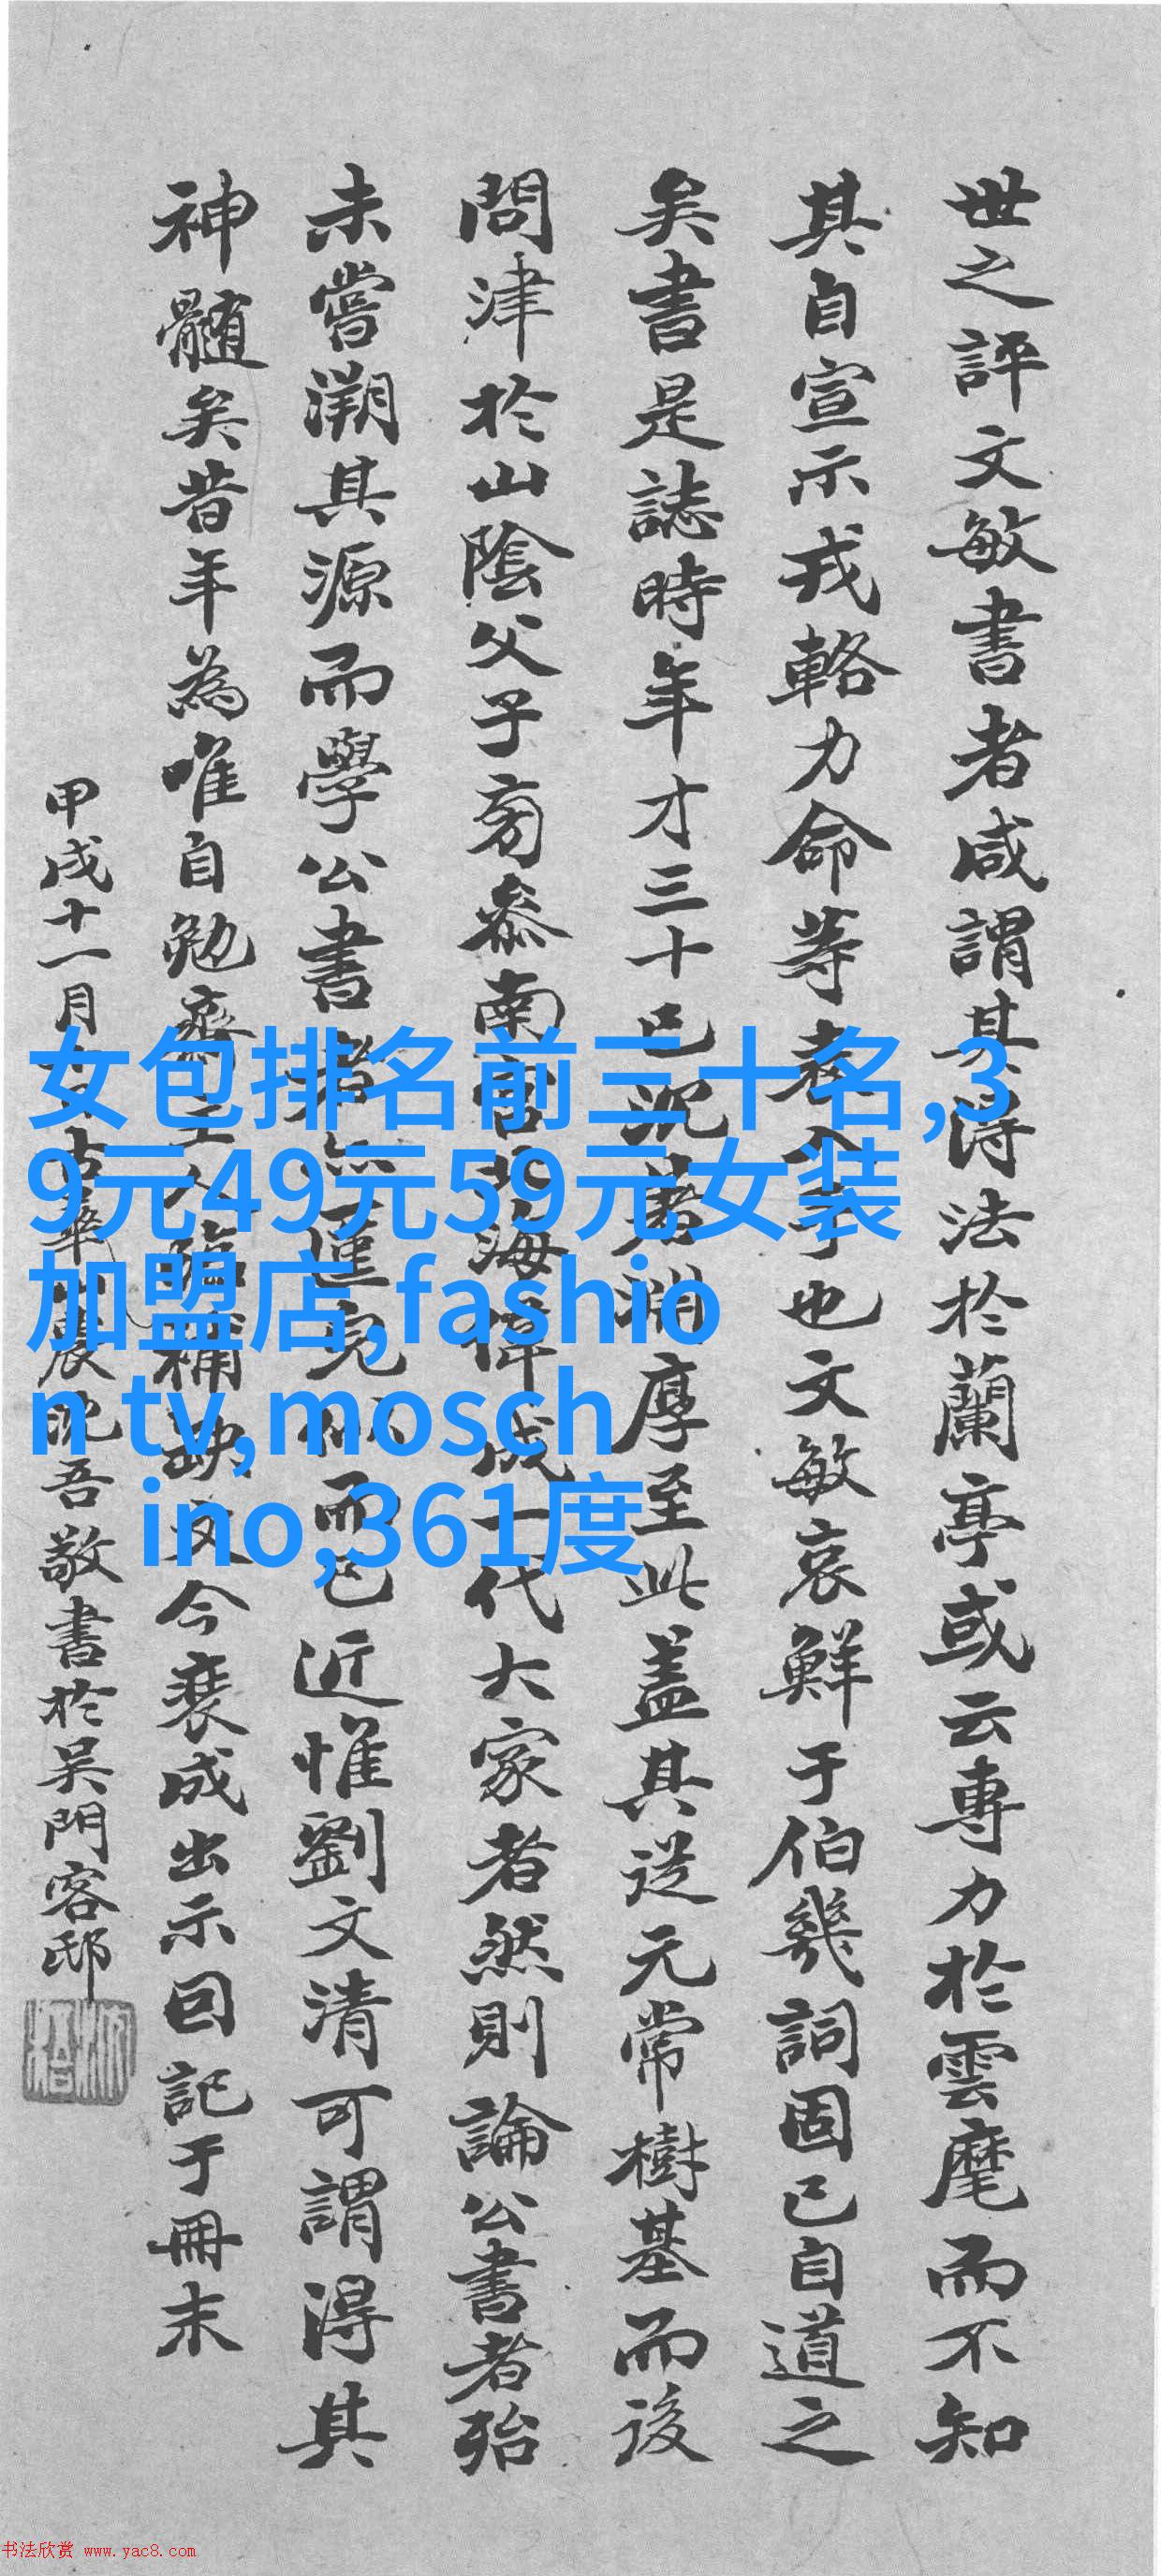 世之評文敏書者咸謂其得法於蘭亭或云專力於雲麾而不知
其自宣示戎輅力命等表入手也文敏哀鮮于伯幾詞固已自道之
矣書是誌時年才三十已沉着淵厚至此蓋其從元常樹基而後
問津於山陰父子旁叅南宮北海偉成一代大家者然則論公書者殆
未嘗溯其源而學公書者無僅完似而已近惟劉文清可謂得其
神髓矣昔年為唯自勉齋主人臨補缺文今裝成出示回記于冊末
甲戌十一月 古華 農沈吾敬書於吴門客邸
女包排名前三十名,3
9元49元59元女装
加盟店,fashio
n tv,mosch
ino,361度
书法欣赏 www.yac8.com